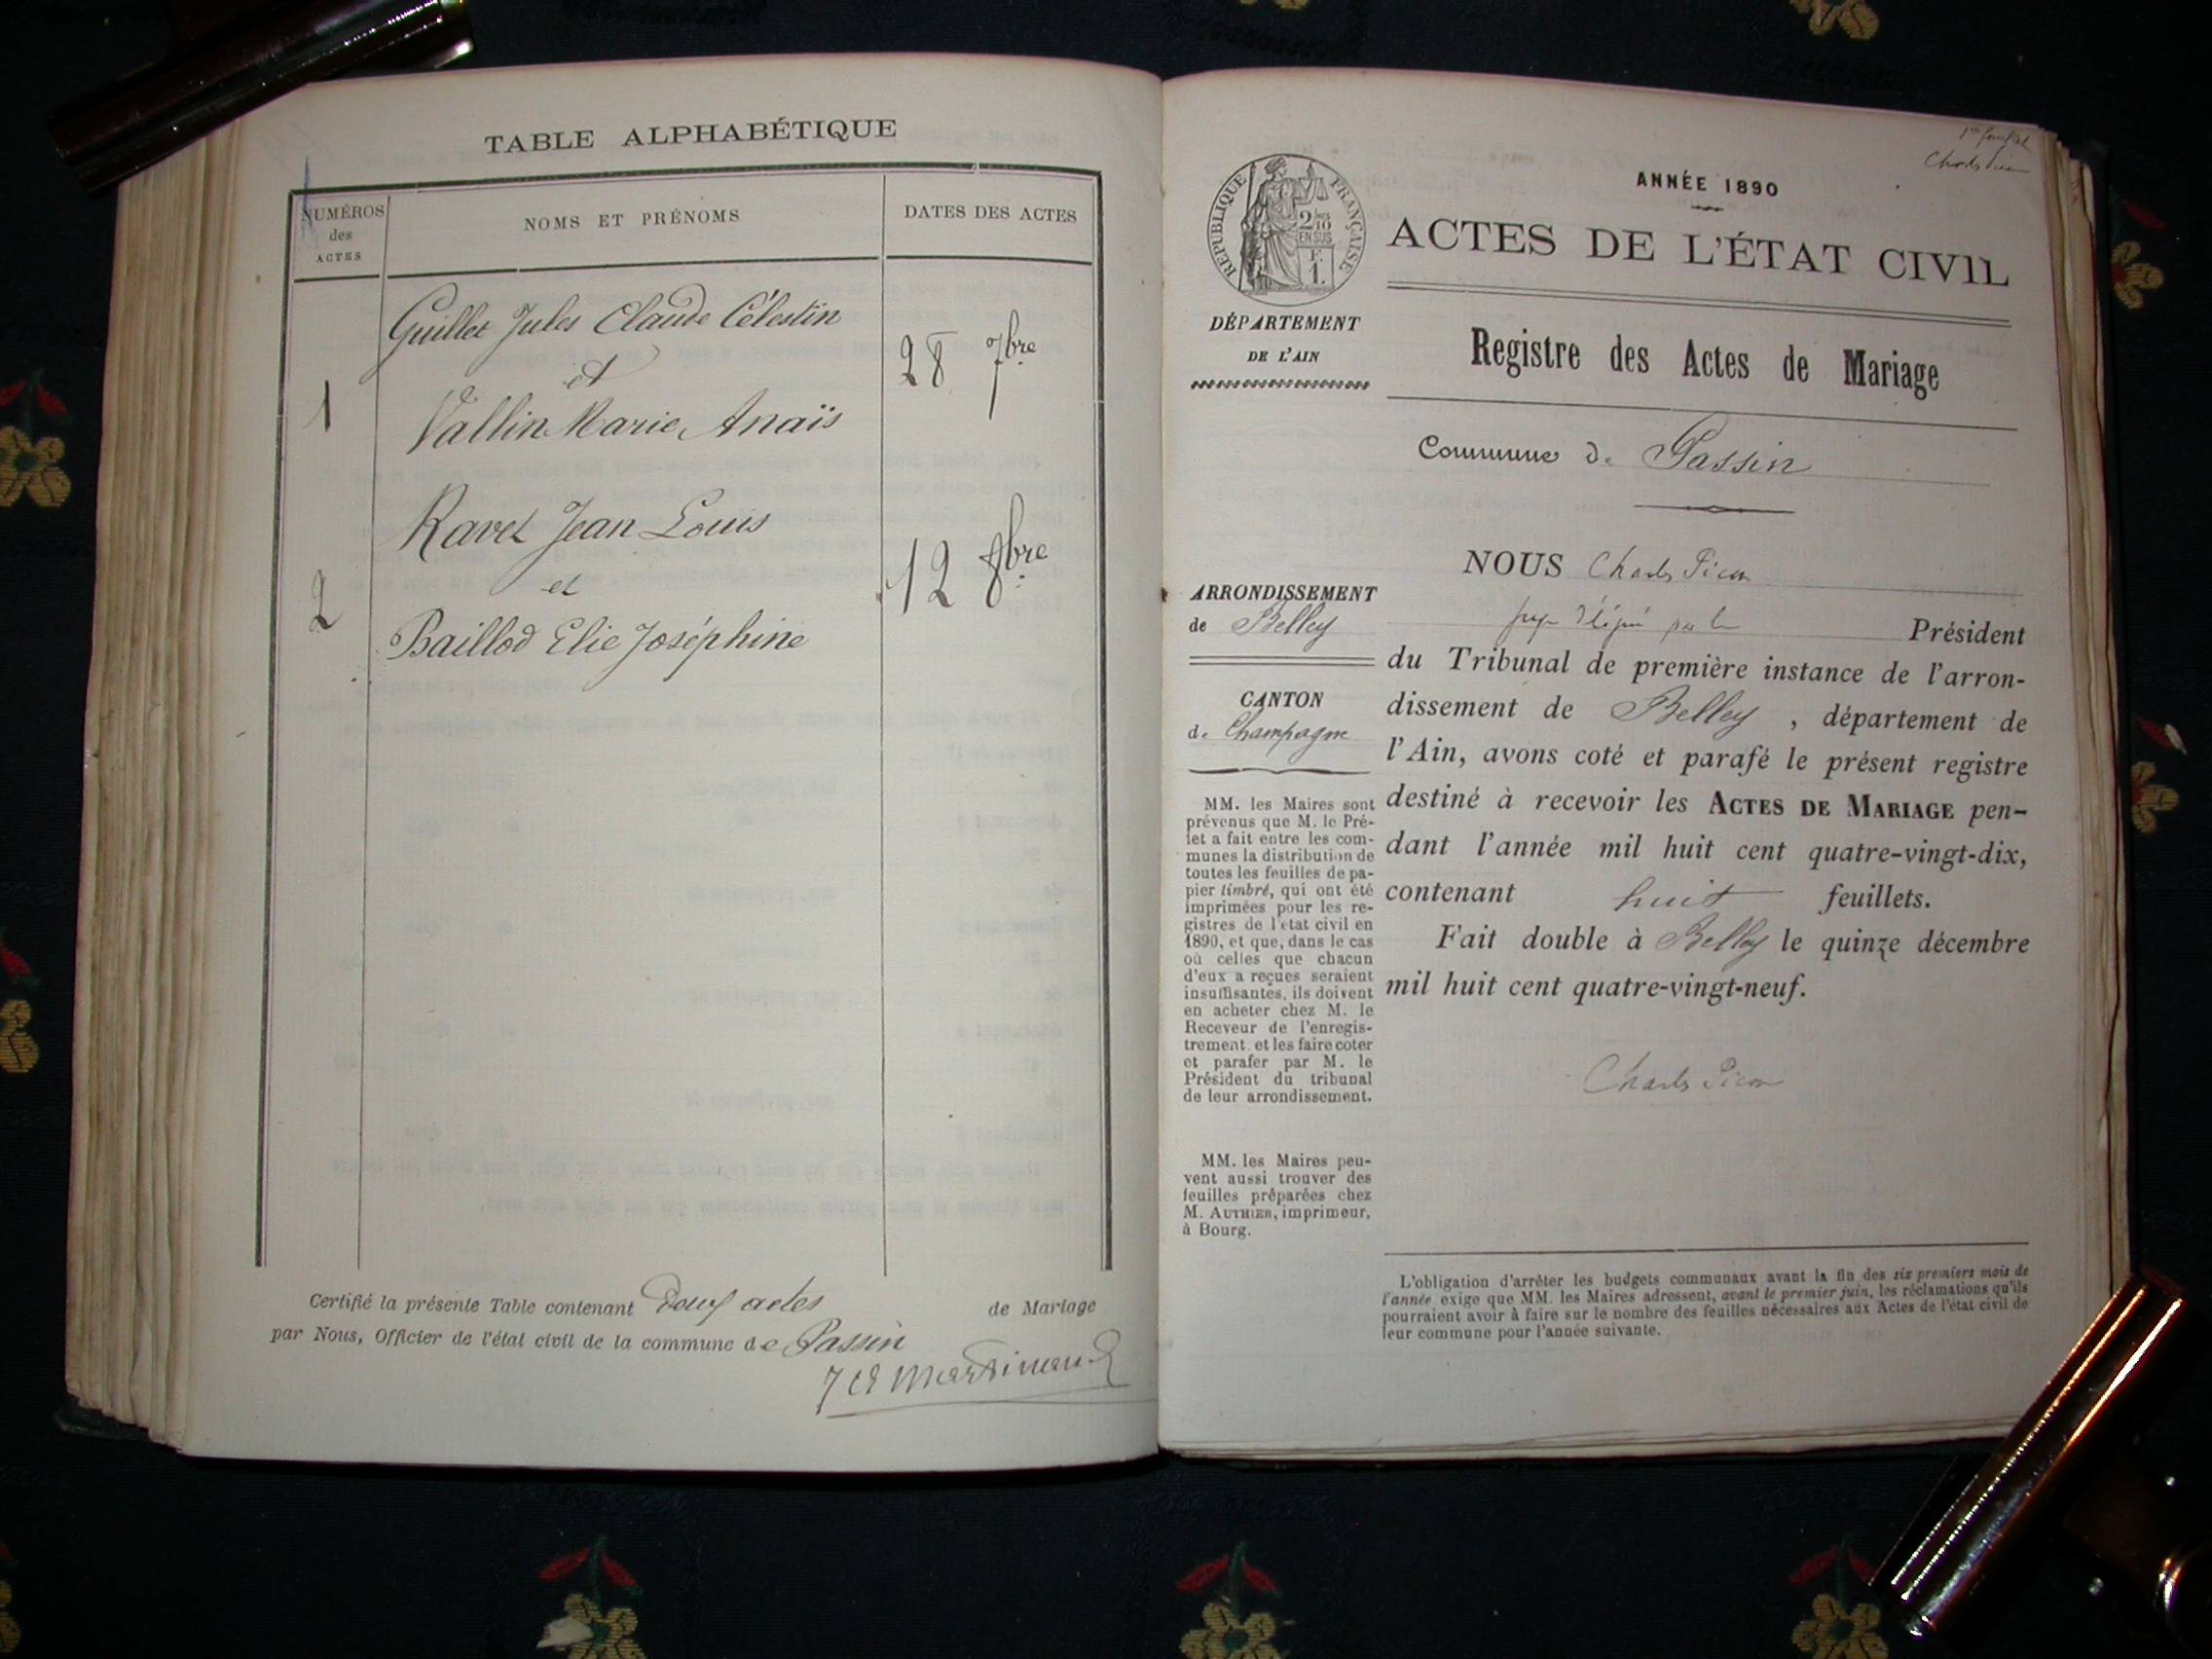 TABLE ALPHABÉTIQUE
NUMÉROS
des
ACTES
NOMS ET PRÉNOMS
DATES DES ACTES
Guillet Jules Claude Célestin
et
1
28 7bre
Vallin Marie Anaïs
Ravet Jean Louis
et
2
12 8bre
Baillod Elie Joséphine
Certifié la présente Table contenant Deux actes de Mariage
par Nous, Officier de l'état civil de la commune de Passin
Martinand
1er feuillet
ANNÉE 1890
ACTES DE L'ÉTAT CIVIL
RÉPUBLIQUE FRANÇAISE
2/10
EN SUS
F.
1.
DÉPARTEMENT
DE L'AIN
Registre des Actes de Mariage
Commune de Passin
ARRONDISSEMENT
de Belley
CANTON
de Champagne
MM. les Maires sont
prévenus que M. le Pré-
fet a fait entre les com-
munes la distribution de
toutes les feuilles de pa-
pier timbré, qui ont été
imprimées pour les re-
gistres de l'état civil en
1890, et que, dans le cas
où celles que chacun
d'eux a reçues seraient
insuffisantes, ils doivent
en acheter chez M. le
Receveur de l'enregis-
trement, et les faire coter
et parafer par M. le
Président du tribunal
de leur arrondissement.
MM. les Maires peu-
vent aussi trouver des
feuilles préparées chez
M. AUTHIER, imprimeur,
à Bourg.
NOUS Charles Picon
juge délégué par le Président
du Tribunal de première instance de l'arron-
dissement de Belley, département de
l'Ain, avons coté et parafé le présent registre
destiné à recevoir les ACTES DE MARIAGE pen-
dant l'année mil huit cent quatre-vingt-dix,
contenant huit feuillets.
Fait double à Belley le quinze décembre
mil huit cent quatre-vingt-neuf.
Charles Picon
L'obligation d'arrêter les budgets communaux avant la fin des six premiers mois de
l'année exige que MM. les Maires adressent, avant le premier juin, les réclamations qu'ils
pourraient avoir à faire sur le nombre des feuilles nécessaires aux Actes de l'état civil de
leur commune pour l'année suivante.